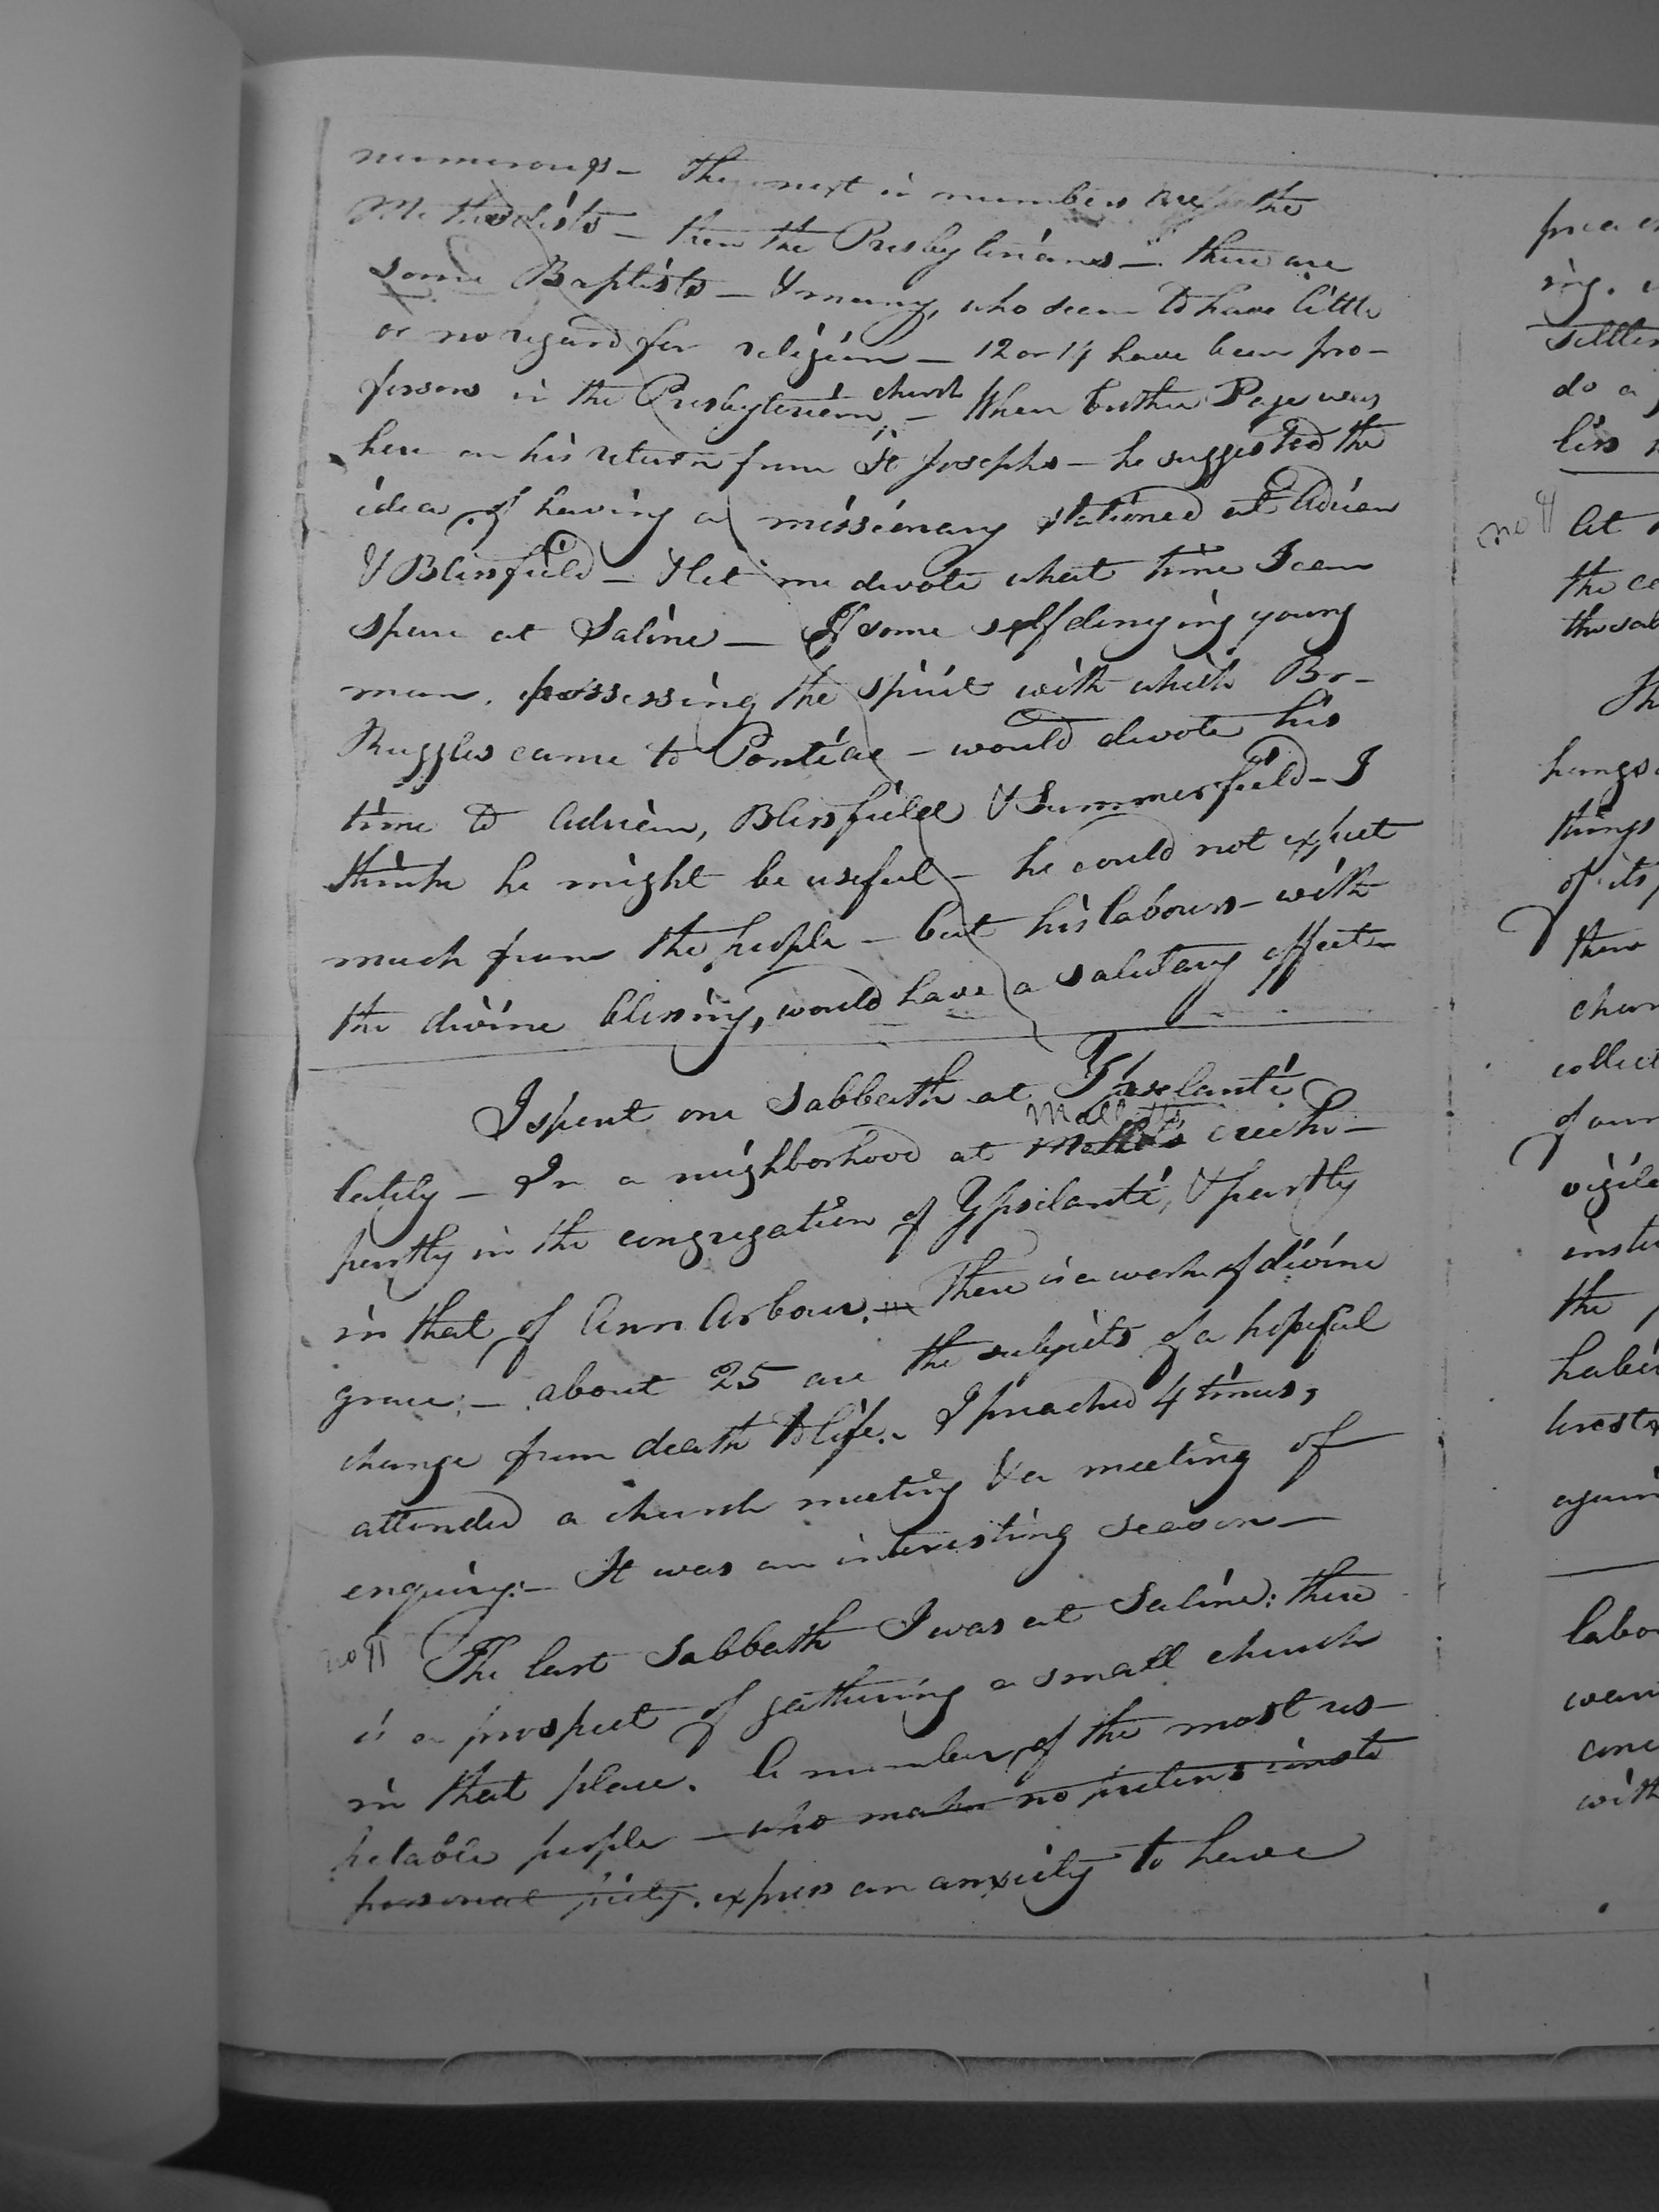 numerous — The next in numbers are the
Methodists — then the Presbyterians — there are
some Baptists — & many, who seem to have little
or no regard for religion — 12 or 14 have been pro-
fessors in the Presbyterian church — When brother Page was
here on his return from St Josephs — he suggested the
idea of having a missionary stationed at Adrian
& Blissfield — & let me devote what time I can
spare at Saline — If some self denying young
man, possessing the spirit with which Br-
Ruggles came to Pontiac — would devote his
time to Adrian, Blissfield & Summerfield — I
think he might be useful — he could not expect
much from the people — but his labours — with
the divine blessing, would have a salutary effect —
I spent one Sabbath at Ypselanti
Malletts
lately — In a neighborhood at creek —
partly in the congregation of Ypsilanti, & partly
in that of Ann Arbour. — There is a work of divine
grace; — about 25 are the subjects of a hopeful
change from death to life. I preached 4 times,
attended a church meeting & a meeting of
enquiry: — It was an interesting season —
no ¶ The last Sabbath I was at Saline: there
is a prospect of gathering a small church
in that place. A number of the most res-
petable people — who make no pretensions to
personal piety. express an anxiety to have
preac
ing.
settle
do a
no ¶ let
the
the sab
Th
hangs
things
of its
then
char
collect
of our
vigil
inst
the
habi
again
labo
wan
conc
with